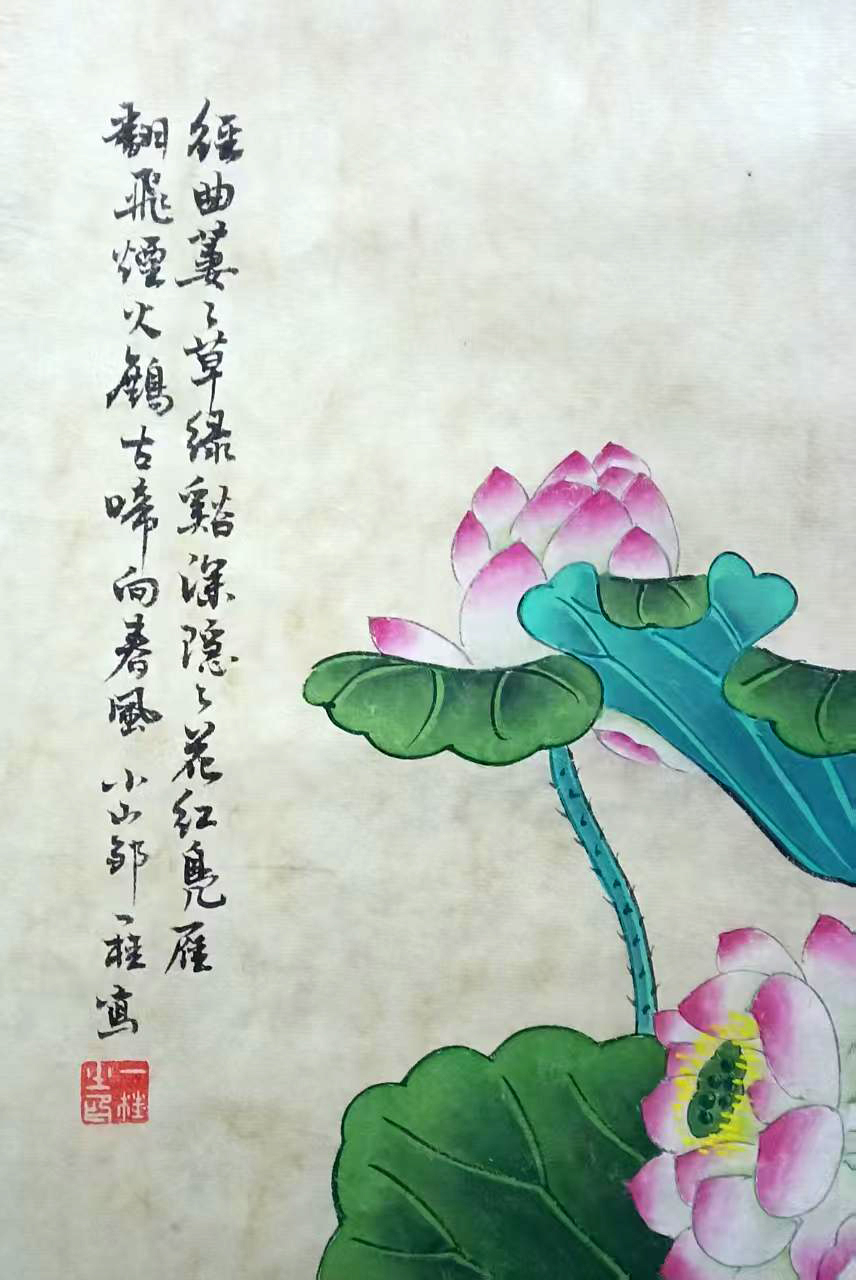 徑曲萋〻草綠谿深隱〻花紅鳧雁
翻飛煙火鷓古啼向春風 小山鄒一桂寫
一桂之印